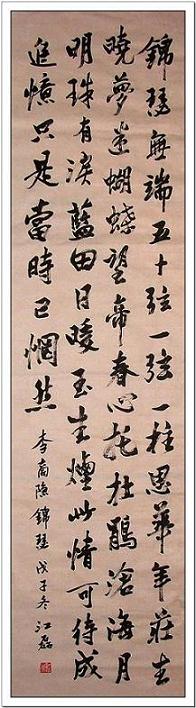 錦瑟無端五十弦一弦一柱思華年莊生
曉夢迷蝴蝶望帝春心托杜鵑滄海月
明珠有淚藍田日暖玉生煙此情可待成
追憶只是當時已惘然
李商隱錦瑟戊子冬江磊